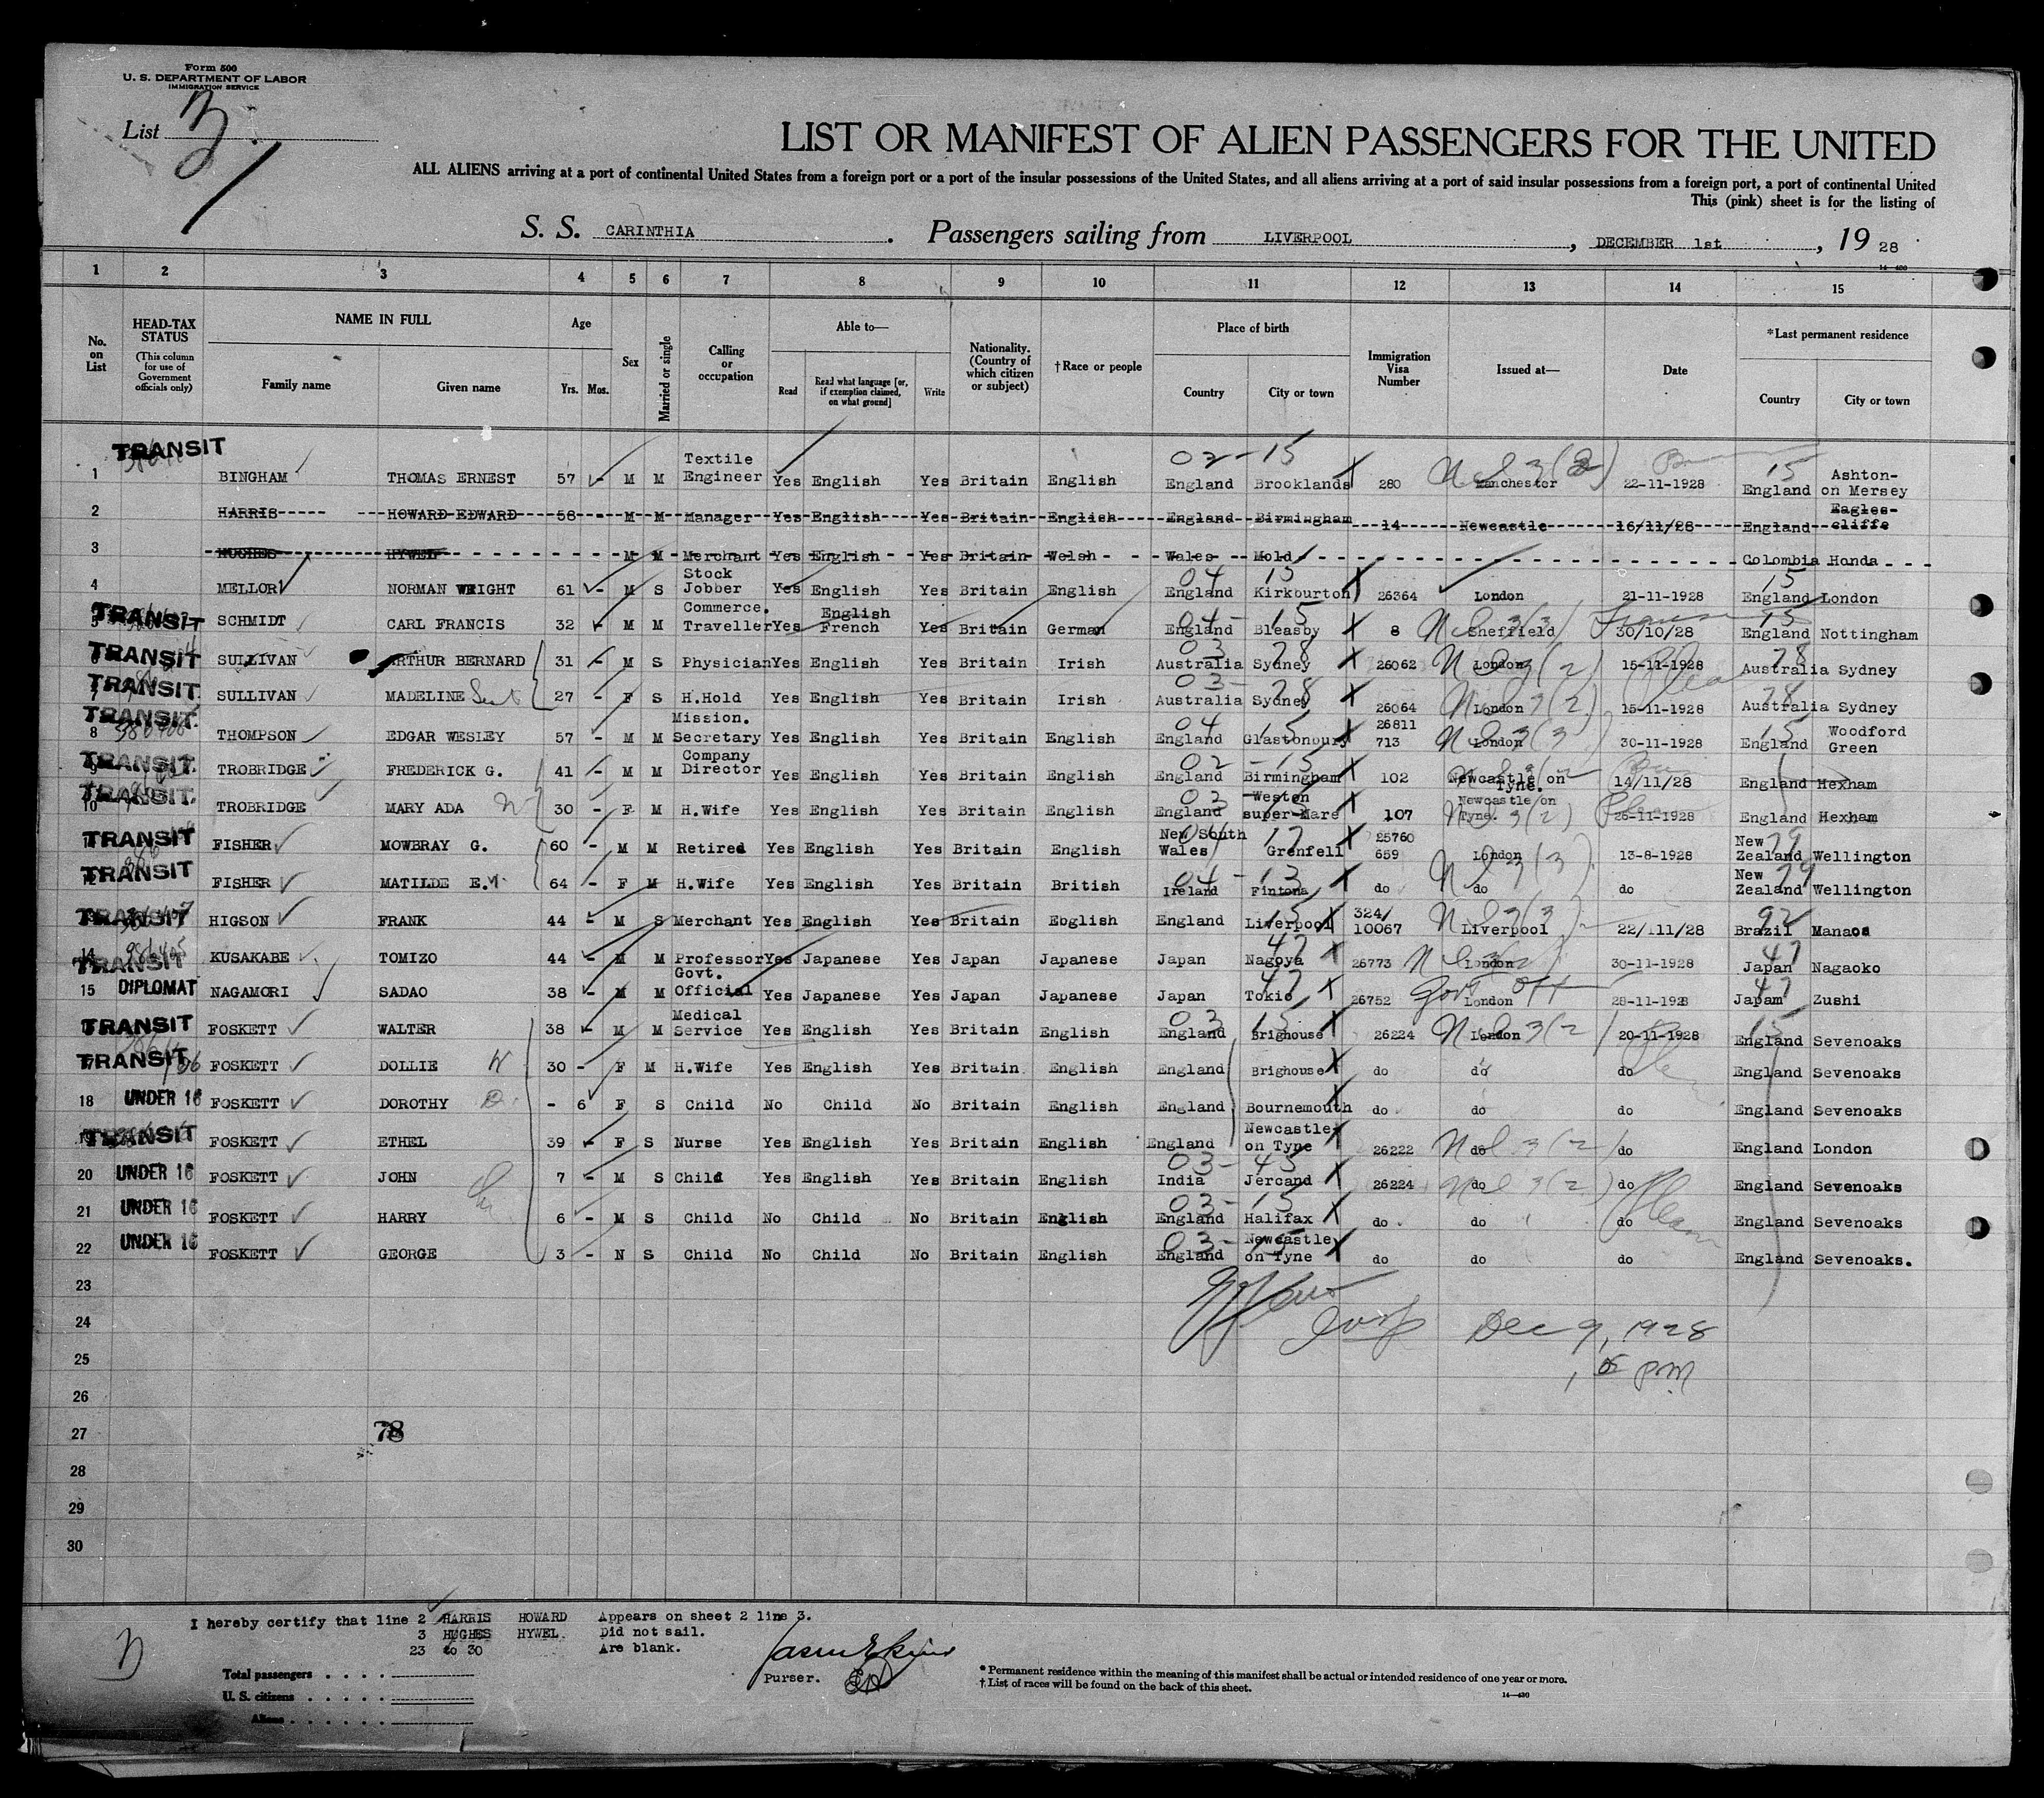 Form 500
U. S. DEPARTMENT OF LABOR
IMMIGRATION SERVICE
List 3
LIST OR MANIFEST OF ALIEN PASSENGERS FOR THE UNITED
ALL ALIENS arriving at a port of continental United States from a foreign port or a port of the insular possessions of the United States, and all aliens arriving at a port of said insular possessions from a foreign port, a port of continental United
This (pink) sheet is for the listing of
S. S. CARINTHIA. Passengers sailing from LIVERPOOL, DECEMBER 1st, 19 28
1 2 3 4 5 6 7 8 9 10 11 12 13 14 15
No. on List HEAD-TAX STATUS (This column for use of Government officials only) NAME IN FULL Family name Given name Age Yrs. Mos. Sex Married or single Calling or occupation Able to— Read Read what language [or, if exemption claimed, on what ground] Write Nationality. (Country of which citizen or subject) †Race or people Place of birth Country City or town Immigration Visa Number Issued at— Date *Last permanent residence Country City or town
1 TRANSIT BINGHAM THOMAS ERNEST 57 - M M Textile Engineer Yes English Yes Britain English 02-15 England Brooklands 280 Manchester 22-11-1928 15 England Ashton-on Mersey
2 HARRIS HOWARD EDWARD 56 - M M Manager Yes English Yes Britain English England Birmingham 14 Newcastle 16/11/28 England Eagles-cliffe
3 HUGHES HYWEL M M Merchant Yes English Yes Britain Welsh Wales Mold Colombia Honda
4 MELLOR NORMAN WRIGHT 61 - M S Stock Jobber Yes English Yes Britain English 04 15 England Kirkburton 26364 London 21-11-1928 15 England London
5 TRANSIT SCHMIDT CARL FRANCIS 32 - M M Commerce. Traveller Yes English French Yes Britain German 04-15 England Bleasby 8 Sheffield 30/10/28 15 England Nottingham
6 TRANSIT SULLIVAN ARTHUR BERNARD 31 - M S Physician Yes English Yes Britain Irish 03 78 Australia Sydney 26062 London 15-11-1928 78 Australia Sydney
7 TRANSIT SULLIVAN MADELINE 27 - F S H.Hold Yes English Yes Britain Irish 03-78 Australia Sydney 26064 London 15-11-1928 78 Australia Sydney
8 TRANSIT THOMPSON EDGAR WESLEY 57 - M M Mission. Secretary Yes English Yes Britain English 04 15 England Glastonbury 26811 713 London 30-11-1928 15 England Woodford Green
9 TRANSIT TROBRIDGE FREDERICK G. 41 - M M Company Director Yes English Yes Britain English 02-15 England Birmingham 102 Newcastle on Tyne. 14/11/28 England Hexham
10 TRANSIT TROBRIDGE MARY ADA 30 - F M H.Wife Yes English Yes Britain English 03 England Weston super-Mare 107 Newcastle on Tyne. 26-11-1928 England Hexham
TRANSIT FISHER MOWBRAY G. 60 - M M Retired Yes English Yes Britain English New South Wales Grenfell 25760 659 London 13-8-1928 New Zealand 79 Wellington
12 TRANSIT FISHER MATILDE E.M. 64 - F M H.Wife Yes English Yes Britain British 04-13 Ireland Fintona do do do New Zealand 79 Wellington
TRANSIT HIGSON FRANK 44 - M S Merchant Yes English Yes Britain Eoglish England 15 Liverpool 324/ 10067 Liverpool 22/111/28 92 Brazil Manaos
14 TRANSIT KUSAKABE TOMIZO 44 - M M Professor Yes Japanese Yes Japan Japanese Japan 47 Nagoya 26773 London 30-11-1928 47 Japan Nagaoko
15 DIPLOMAT NAGAMORI SADAO 38 - M M Govt. Official Yes Japanese Yes Japan Japanese Japan 47 Tokio 26752 London Govt Off 28-11-1928 47 Japam Zushi
TRANSIT FOSKETT WALTER 38 - M M Medical Service Yes English Yes Britain English 03 15 England Brighouse 26224 London 20-11-1928 15 England Sevenoaks
TRANSIT FOSKETT DOLLIE W 30 - F M H.Wife Yes English Yes Britain English England Brighouse do do do England Sevenoaks
18 UNDER 16 FOSKETT DOROTHY D. - 6 F S Child No Child No Britain English England Bournemouth do do do England Sevenoaks
TRANSIT FOSKETT ETHEL 39 - F S Nurse Yes English Yes Britain English England Newcastle on Tyne 26222 do do England London
20 UNDER 16 FOSKETT JOHN 7 - M S Child Yes English Yes Britain English 03-45 India Jercand 26224 do do England Sevenoaks
21 UNDER 16 FOSKETT HARRY 6 - M S Child No Child No Britain English 03-15 England Halifax do do do England Sevenoaks
22 UNDER 16 FOSKETT GEORGE 3 - N S Child No Child No Britain English 03-15 England Newcastle on Tyne do do do England Sevenoaks.
23
24 Dec 9, 1928
25 5 PM
26
27 78
28
29
30
I hereby certify that line 2 HARRIS HOWARD Appears on sheet 2 line 3.
3 HUGHES HYWEL. Did not sail.
23 to 30 Are blank.
Purser.
Total passengers
U. S. citizens
Aliens
* Permanent residence within the meaning of this manifest shall be actual or intended residence of one year or more.
† List of races will be found on the back of this sheet.
14—430